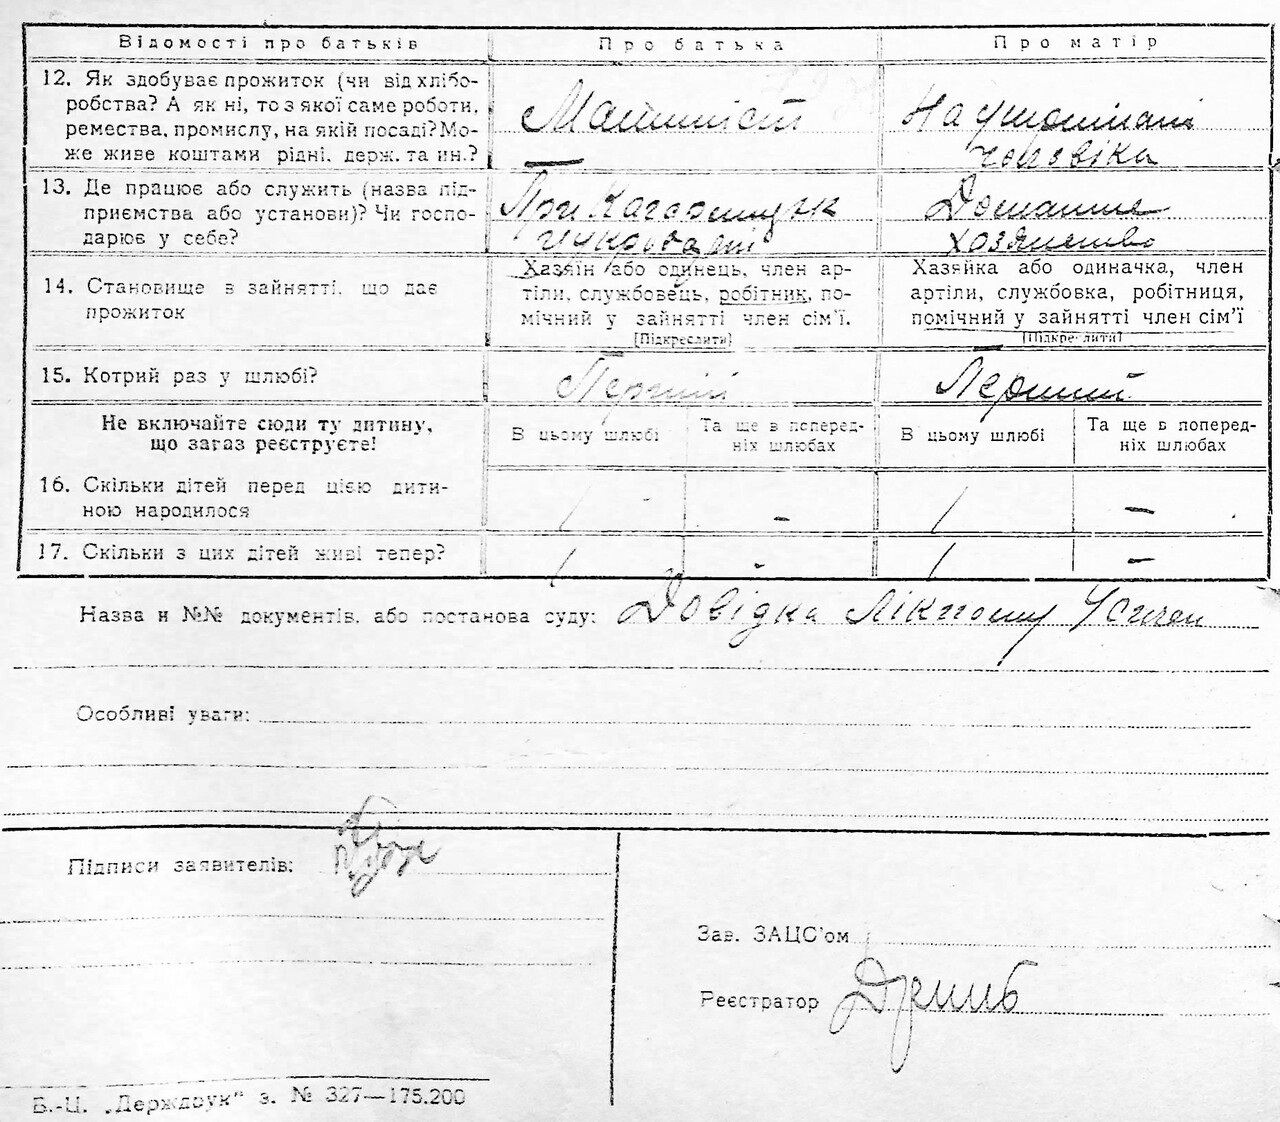 Відомості про батьків Про батька Про матір
12. Як здобуває прожиток (чи від хлібо-
робства? А як ні, то з якої саме роботи,
ремества, промислу, на якій посаді? Мо-
же живе коштами рідні, держ. та ин.?
Машиніст
На утриманні
чоловіка
13. Де працює або служить (назва під-
приємства або установи)? Чи госпо-
дарює у себе?
При
Домашне
хозяйство
14. Становище в зайнятті, що дає
прожиток
Хазяїн або одинець, член ар-
тіли, службовець, робітник, по-
мічний у зайнятті член сім'ї.
[Підкреслити]
Хазяйка або одиначка, член
артіли, службовка, робітниця,
помічний у зайнятті член сім'ї
[Підкреслити]
15. Котрий раз у шлюбі? Перший Перший
Не включайте сюди ту дитину,
що зараз реєструєте!
В цьому шлюбі
Та ще в поперед-
ніх шлюбах
В цьому шлюбі
Та ще в поперед-
ніх шлюбах
16. Скільки дітей перед цією дити-
ною народилося
1 - 1 -
17. Скільки з цих дітей живі тепер? 1 - 1 -
Назва и №№ документів, або постанова суду: Довідка
Особливі уваги:
Підписи заявителів:
Зав. ЗАЦС'ом
Реєстратор
Б.-Ц. „Держдрук" з. № 327—175.200